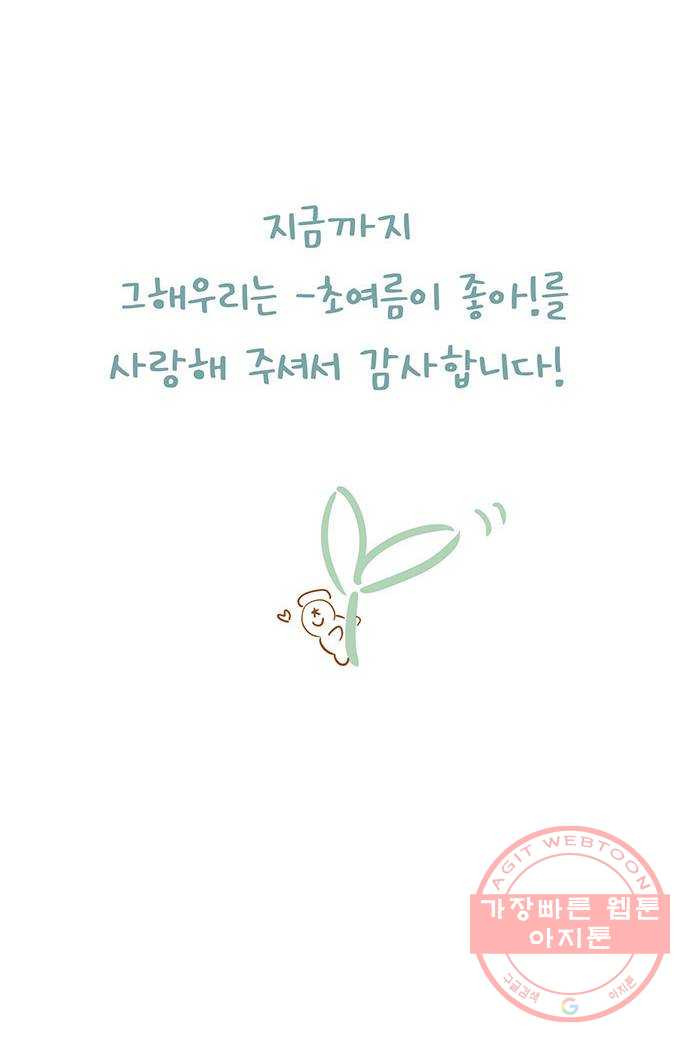 지금까지
그해우리는 -초여름이 좋아!를
사랑해 주셔서 감사합니다!
AGIT WEBTOON
가장빠른 웹툰
아지툰
구글검색 G 아지툰